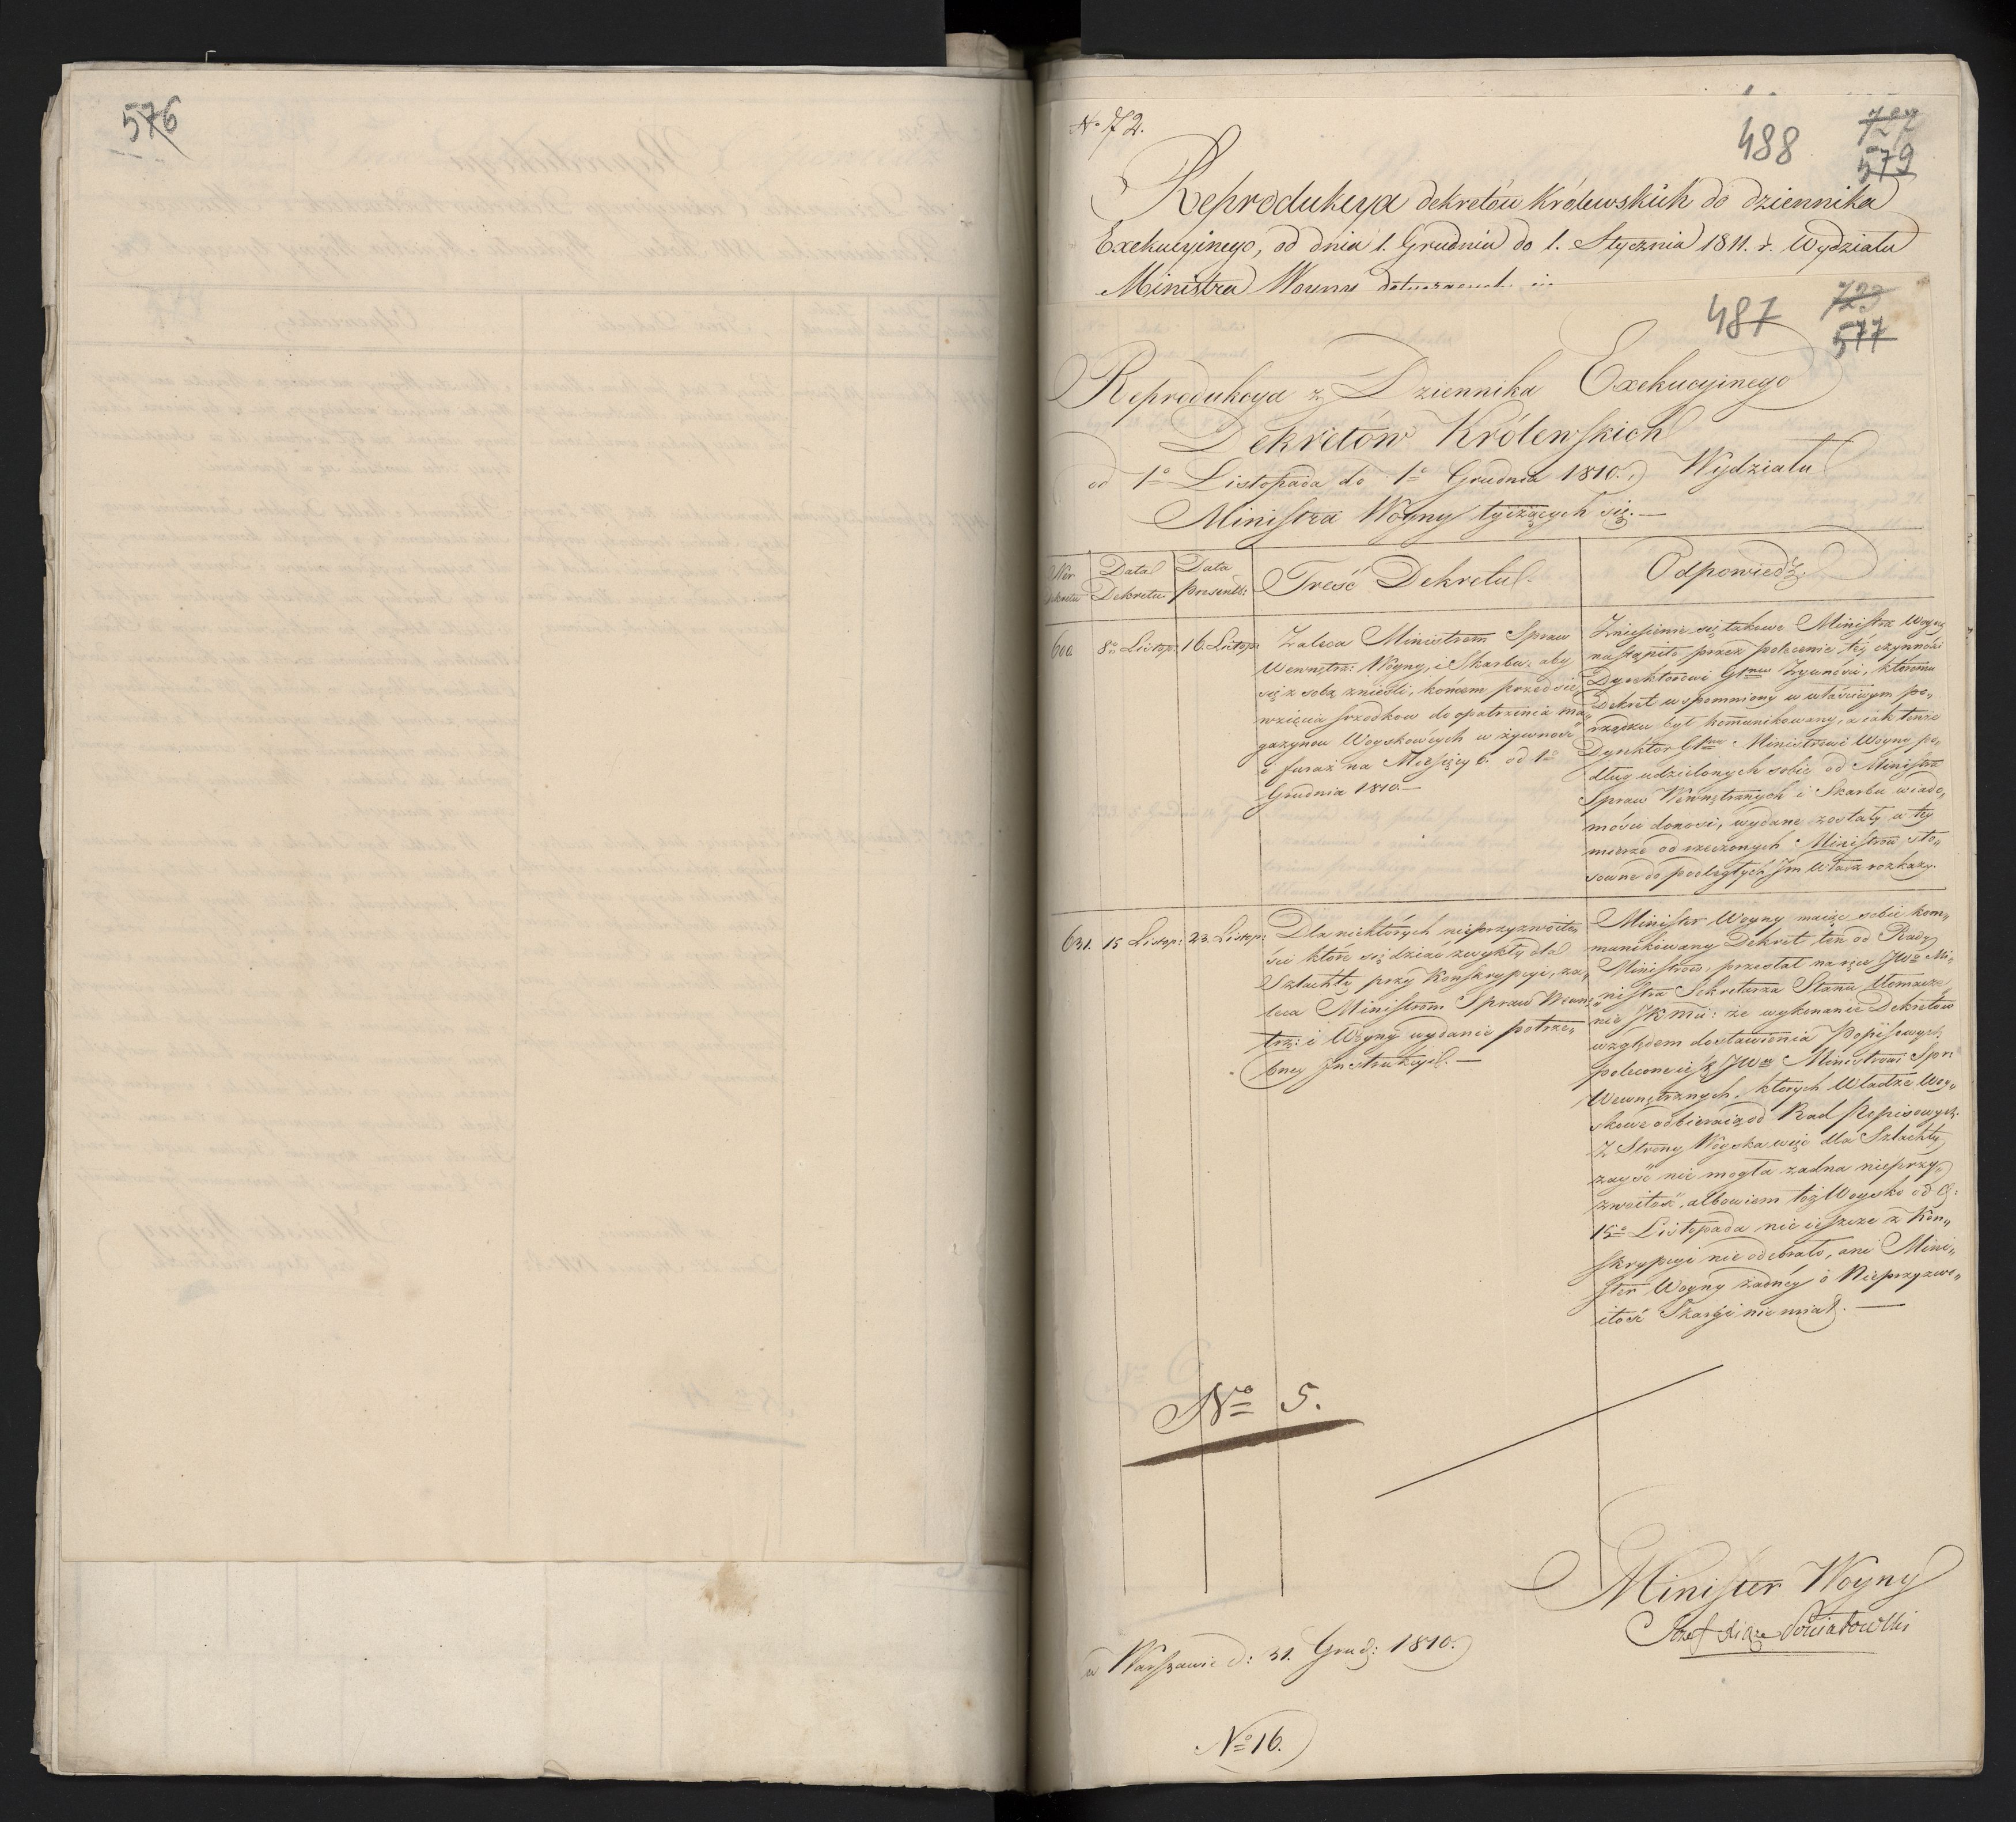 576
No 72.
488
727
579
Reprodukcya dekretów Królewskich do dziennika
Exekucyinego, od dnia 1. Grudnia do 1. Stycznia 1811. r. Wydziału
Ministra Woyny dotyczących się
487
723
577
Reprodukcya z Dziennika Exekucyinego
Dekretów Królewskich
od 1o Listopada do 1o Grudnia 1810. Wydziału
Ministra Woyny tyczących się. —
Ner Dekretu
Data Dekretu
Data present:
Treść Dekretu.
Odpowiedź.
600.
8o Listop:
16. Listop:
Zaleca Ministrom Spraw
Wewnętrz: Woyny, i Skarbu, aby
się z sobą znieśli, końcem przedsię„
wzięcia srzodkow do opatrzenia ma„
gazynow Woyskowych w żywność
i furaż na Miesięcy 6. od 1o
Grudnia 1810 —
Zniesienie się takowe Ministra Woyny
nastąpiło przez polecenie tey czynności
Dyrektorowi Glmu Żywności, któremu
Dekret wspomniony w właściwym po„
rządku był komunikowany, a iak tenże
Dyrektor Glny Ministrowi Woyny po„
dług udzielonych sobie od Ministra
Spraw Wewnętrznych i Skarbu wiado„
mości donosi, wydane zostały w tey
mierze od rzeczonych Ministrów sto„
sowne do podległych Im Władz rozkazy.
631.
15 Listop:
23. Listop:
Dla niektórych nieprzyzwoito„
ści które się dziać zwykły dla
Szlachty przy Konskrypcyi, za„
leca Ministrom Spraw Wewn„
trz: i Woyny wydanie potrze„
bney Instrukcyi. —
Minister Woyny maiąc sobie kom„
munikowany Dekret ten od Rady
Ministrów, przesłał na ręce JWo Mi„
nistra Sekretarza Stanu tłomacze„
nie JKMci: że wykonanie Dekretów
względem dostawienia Popisowych
polecone iest JWu Ministrowi Spr:
Wewnętrznych, których Władze Woy„
skowe odbieraią od Rad Popisowych.
Z Strony Woyska więc dla Szlachty
zayść nie mogła żadna nieprzy„
zwoitość, albowiem też Woysko od d:
15o Listopada nic ieszcze z Kon„
skrypcyi nie odebrało, ani Mini„
ster Woyny żadney o Nieprzyzwo„
itość Skargi nie miał. —
No 5.
Minister Woyny
Józef Xiąże Poniatowski
w Warszawie d: 31. Grud: 1810.
No 16.